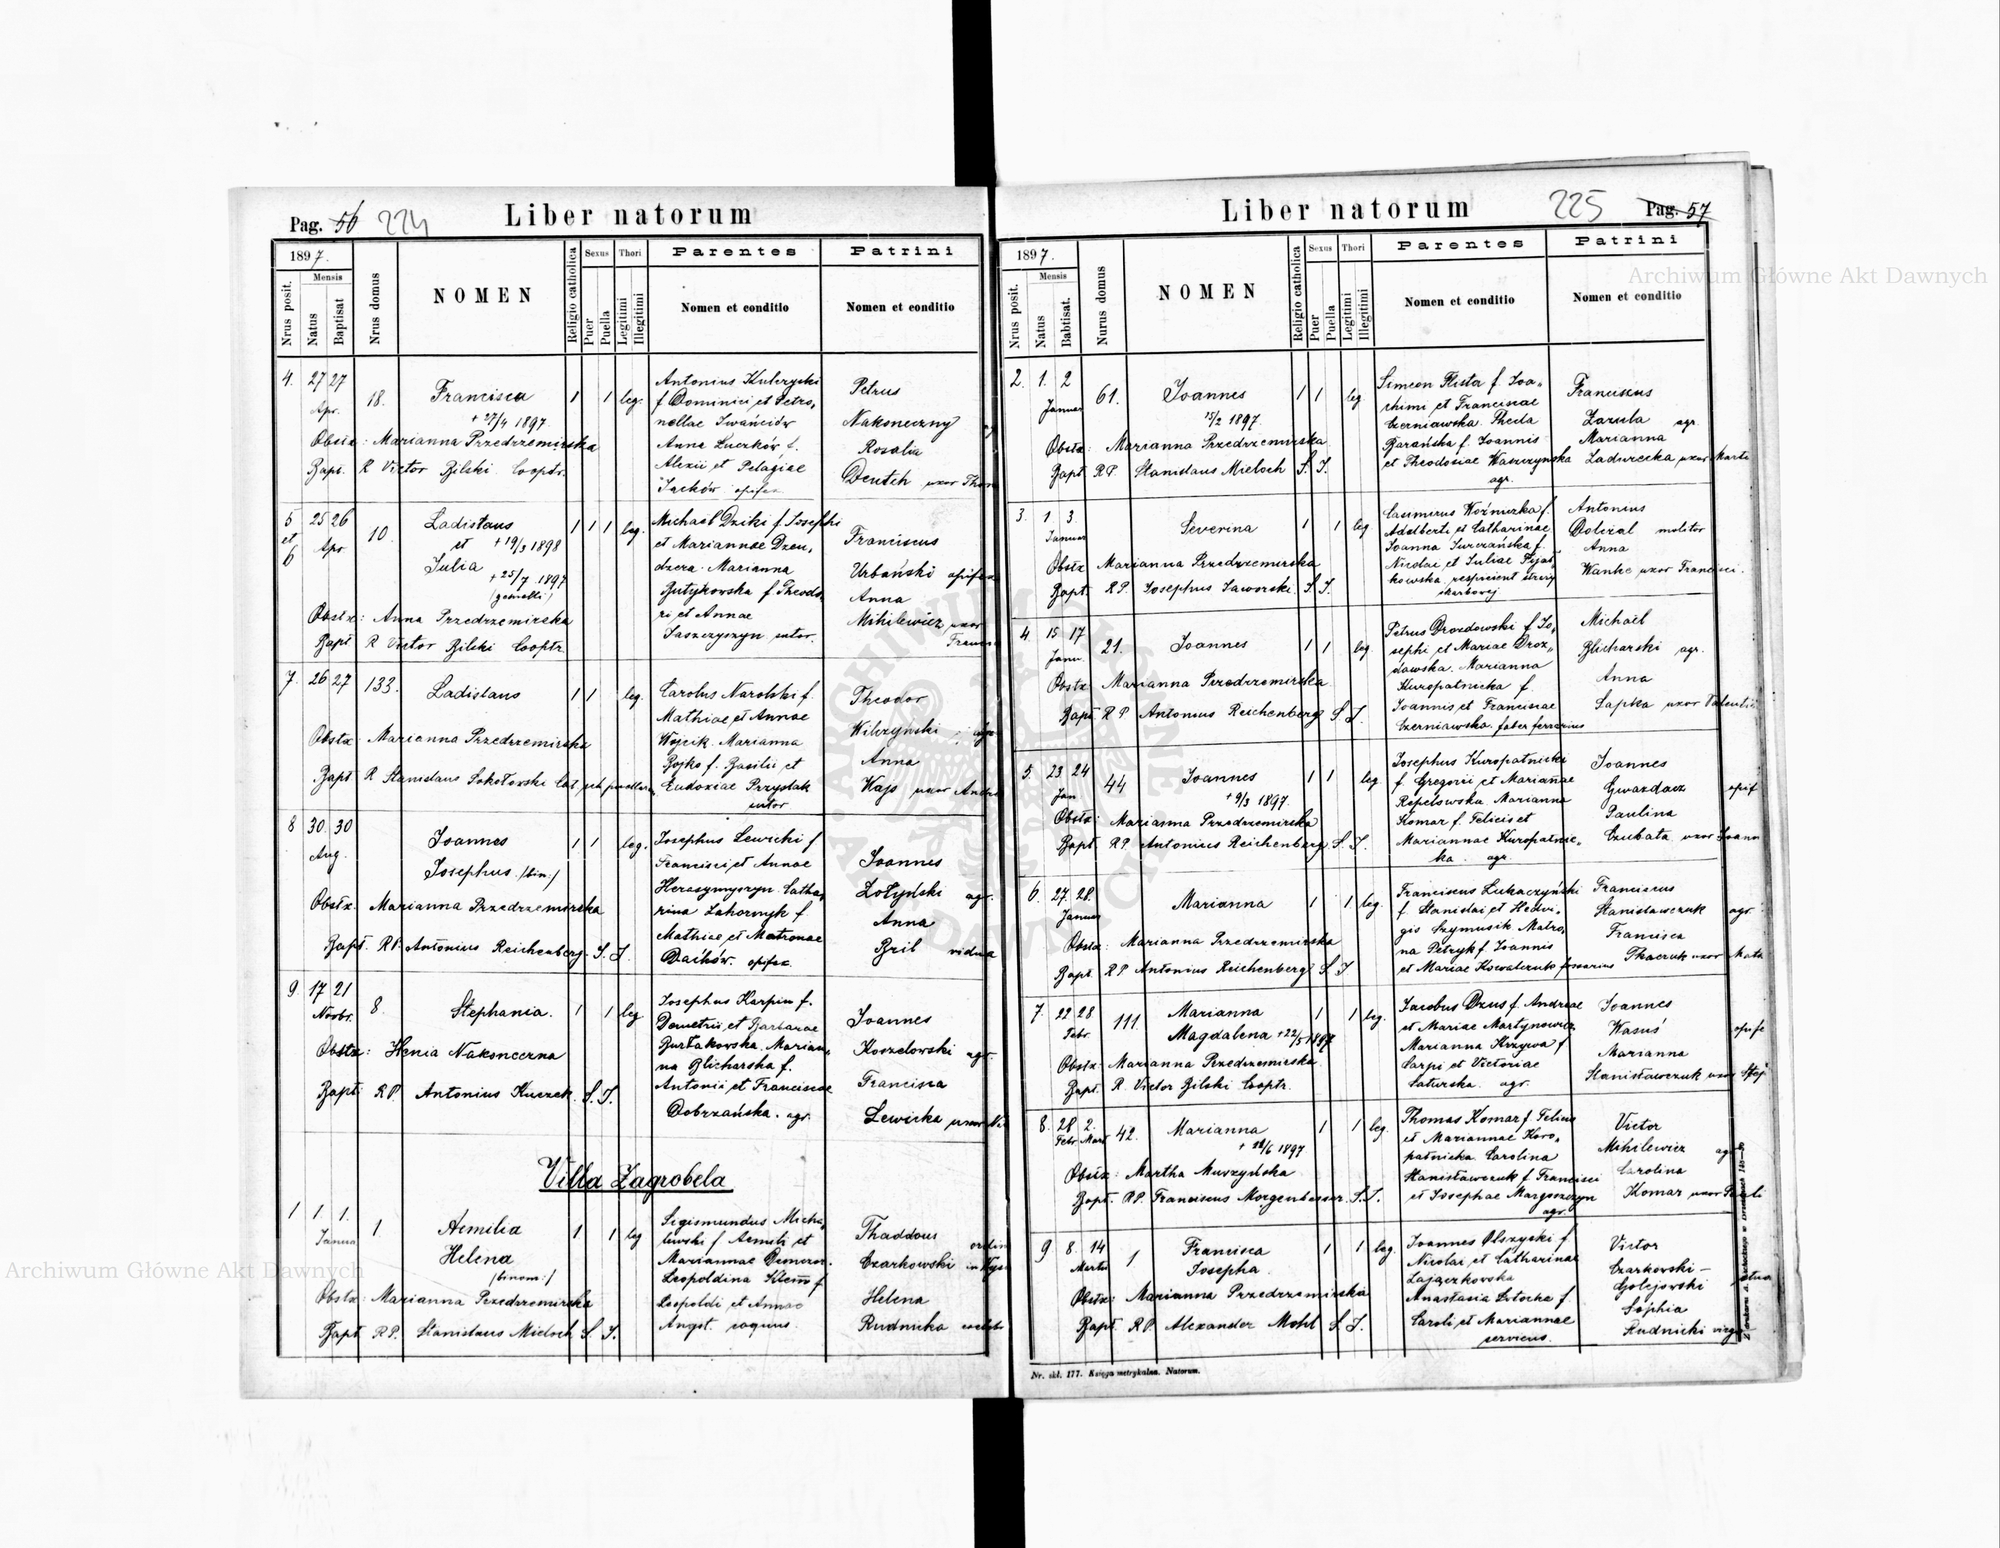 Pag. 56 224 Liber natorum
1897.
Nrus posit.
Mensis
Natus
Baptisat
Nrus domus
NOMEN
Religio catholica
Sexus
Puer
Puella
Thori
Legitimi
Illegitimi
Parentes
Nomen et conditio
Patrini
Nomen et conditio
4. 27 27 Apr. 18. Francisca 1 1 leg.
+ 27/4 1897.
Obstx: Marianna Przedrzemirska
Bapt. R Victor Bilski Cooptr.
Antonius Kulczycki
f Dominici et Petro,
nellae Iwańciów
Anna Luczków f.
Alexii et Pelagiae
Jacków opifex
Petrus
Nakoneczny
Rosalia
Deutch uxor Thom
5 et 6 25 26 Apr 10. Ladislaus 1 1 1 leg.
et + 19/3 1898
Julia
+ 25/7 1897
/gemelli/
Obstx: Anna Przedrzemirska
Bapt. R Victor Bilski Cooptr.
Michaël Dziki f. Josephi
et Mariannae Dzen,
dzera. Marianna
Butykowska f. Theodo,
ri et Annae
Saszczyszyn sutor.
Franciscus
Urbański opifex
Anna
Mihilewicz uxor
Francis
7. 26 27 133. Ladislaus 1 1 leg.
Obstx: Marianna Przedrzemirska
Bapt R Stanislaus Sokołowski Cat.
Carolus Narolski f.
Mathiae et Annae
Wojcik. Marianna
Bojko f. Basilii et
Eudoxiae Przystak
sutor
Theodor
Wilczyński
Anna
Wajs uxor Andre
8 30. 30 Aug. Joannes 1 1 leg.
Josephus /bin:/
Obstx. Marianna Przedrzemirska
Bapt. RP. Antonius Reichenberg S. J.
Josephus Lewicki f
Francisci et Annae
Herasymyszyn. Catha,
rina Zahornyk f.
Mathiae et Matronae
Daików. opifex.
Joannes
Zołyński agr.
Anna
Bril vidua
9. 17 21 Novbr. 8. Stephania. 1 1 leg
Obstx: Henia Nakoneczna
Bapt: RP. Antonius Kuczek S. J.
Josephus Karpiu f.
Demetrii et Barbarae
Burłakowska. Marian,
na Blicharska f.
Antonii et Franciscae
Dobrzańska. agr.
Joannes
Kozelowski agr.
Francisca
Lewicka uxor Ni
Villa Zagrobela
1 1. 1. Janua 1. Aemilia 1 1 leg
Helena
/binom:/
Obstx: Marianna Przedrzemirska
Bapt. RP. Stanislaus Mieloch S. J.
Sigismundus Micha,
lewski f Aemili et
Mariannae Demczor.
Leopoldina Klem̄ f
Leopoldi et Annae
Angst. coquus.
Thaddäus
Czarkowski
Helena
Rudnicka
Liber natorum 225 Pag. 57
1897.
Nrus posit.
Mensis
Natus
Babtisat.
Nurus domus
NOMEN
Religio catholica
Sexus
Puer
Puella
Thori
Legitimi
Illegitimi
Parentes
Nomen et conditio
Patrini
Nomen et conditio
2. 1. 2 Januar 61. Joannes 1 1 leg
15/2 1897.
Obstx: Marianna Przedrzemirska.
Bapt RP. Stanislaus Mieloch S. J.
Simeon Flista f. Joa,,
chimi et Franciscae
Czerniawska. Thecla
Barańska f. Joannis
et Theodosiae Waszczynska
agr.
Franciscus
Zazula agr.
Marianna
Ladurecka uxor Marti
3. 1 3. Januar Severina 1 1 leg
Obstx Marianna Przedrzemirska
Bapt. RP. Josephus Jaworski. S. J.
Casimirus Woźniczka f.
Adalberti et Catharinae
Joanna Jurczańska f.
Nicolai et Juliae Fijał,
kowska. respicient straży
skarbowej
Antonius
Doležal molitor
Anna
Wanke uxor Francisci.
4. 15 17 Janu. 21. Joannes 1 1 leg.
Obstx: Marianna Przedrzemirska
Bapt. RP Antonius Reichenberg S J.
Petrus Drozdowski f. Jo,
sephi et Mariae Droz,,
dowska. Marianna
Kuropatnicka f.
Joannis et Franciscae
Czerniawska. faber ferrarius
Michaël
Blicharski agr.
Anna
Sapka uxor Valentii
5. 23 24 Jan 44 Joannes 1 1 leg
+ 9/3 1897.
Obstx: Marianna Przedrzemirska
Bapt. RP. Antonius Reichenberg S. J.
Josephus Kuropatnicki
f. Gregorii et Mariañae
Repelowska. Marianna
Komar f. Felicis et
Mariannae Kuropatnic,,
ka. agr.
Joannes
Gwazdacz opif
Paulina
Czubata uxor Joann
6. 27. 28. Januar Marianna 1 1 leg.
Obstx: Marianna Przedrzemirska
Bapt RP Antonius Reichenberg S J.
Franciscus Lukaczyński
f. Stanislai et Hedvi,
gis Szymusik. Matro,
na Petryk f. Joannis
et Mariae Kowalczuk
Franciscus
Stanisławczuk agr.
Francisca
Tkaczuk uxor Math
7. 22 28 Febr. 111. Marianna 1 1 leg.
Magdalena + 22/5 1897
Obstx: Marianna Przedrzemirska
Bapt. R. Victor Bilski Cooptr.
Jacobus Dzus f. Andreae
et Mariae Martynowicz
Marianna Krzywa f
Carpi et Victoriae
Saturska. agr.
Joannes
Wasuś opife
Marianna
Stanisławczuk uxor Stef
8. 28 2. Febr Mart 42. Marianna 1 1 leg.
+ 12/6 1897
Obstx: Martha Murzyńska
Bapt. RP. Franciscus Morgenbesser. S. J.
Thomas Komar f Felicis
et Mariannae Koro,
patnicka. Carolina
Stanisławczuk f Francisci
et Josephae Margoszczyn
agr.
Victor
Mihilewicz agr
Carolina
Komar uxor Pauli
9 8. 14 Martii 1 Francisca 1 1 leg.
Josepha.
Obstx: Marianna Przedrzemirska
Bapt: RP. Alexander Mohl S J.
Joannes Olszycki f.
Nicolai et Catharinae
Zajączkowska
Anastasia Sztocka f.
Caroli et Mariannae
servicus.
Victor
Czarkowski –
Golejowski
Sophia
Rudnicki virgo
Nr. skł. 177. Księga metrykalna. Natorum.
Archiwum Główne Akt Dawnych
Archiwum Główne Akt Dawnych